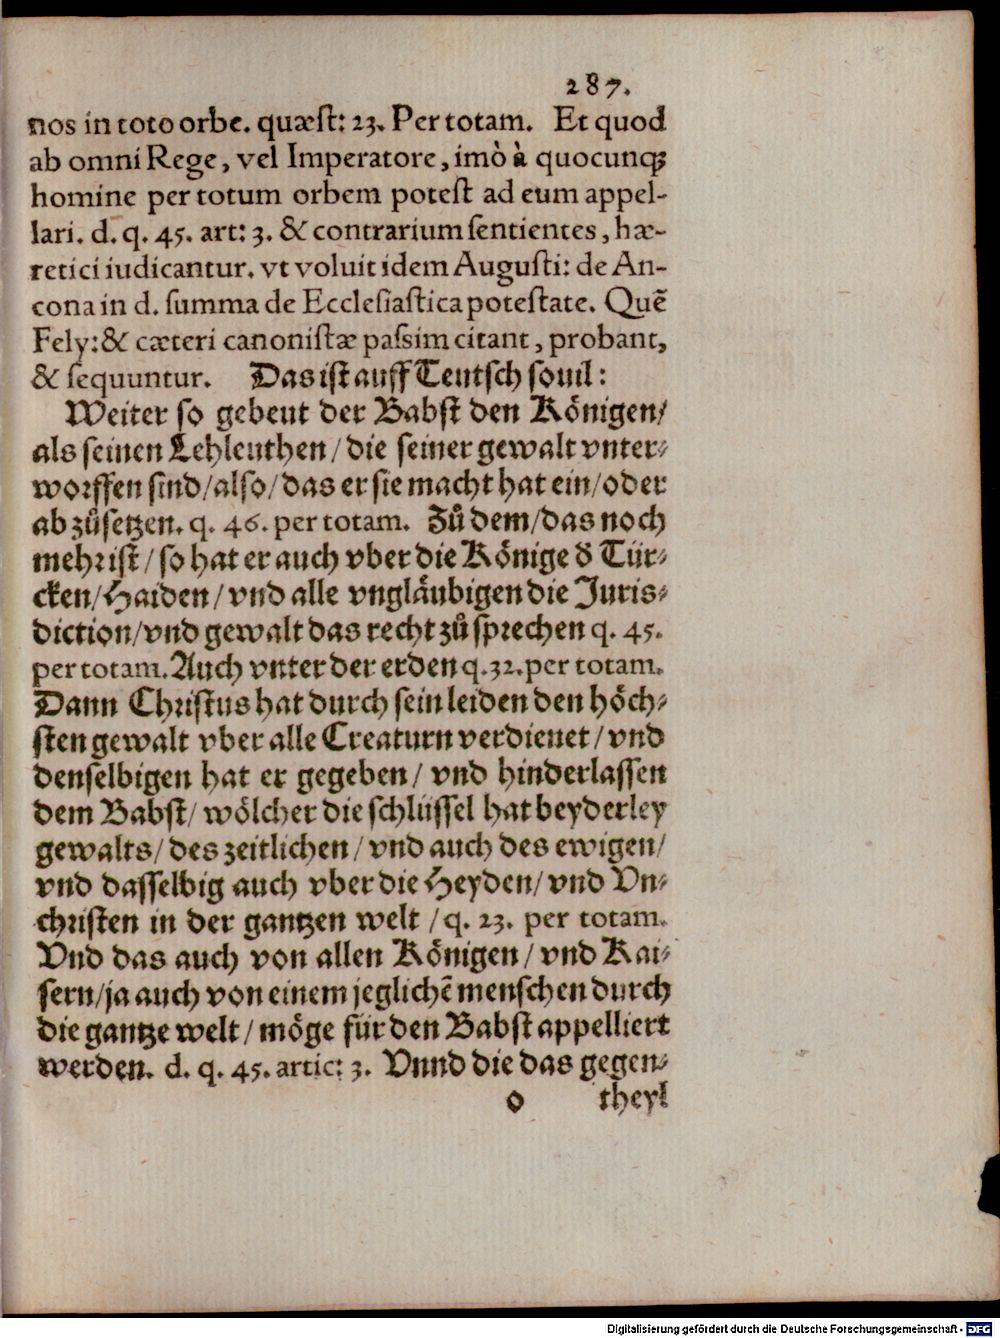 287.
nos in toto orbe. quæst: 23. Per totam. Et quod
ab omni Rege, vel Imperatore, imò à quocunqꝫ
homine per totum orbem potest ad eum appel-
lari. d. q. 45. art: 3. & contrarium sentientes, hæ-
retici iudicantur. vt voluit idem Augusti: de An-
cona in d. summa de Ecclesiastica potestate. Quẽ
Fely: & cæteri canonistæ passim citant, probant,
& sequuntur. Das ist auff Teutsch souil:
Weiter so gebeut der Babst den Königen/
als seinen Lehleuthen/ die seiner gewalt vnter-
worffen sind/also/das er sie macht hat ein/oder
ab zůsetzen. q. 46. per totam. Zů dem/das noch
mehr ist/ so hat er auch vber die Könige ď Tür-
cken/Haiden/ vnd alle vngläubigen die Juris-
diction/vnd gewalt das recht zů sprechen q. 45.
per totam. Auch vnter der erden q. 32. per totam.
Dann Christus hat durch sein leiden den höch-
sten gewalt vber alle Creaturn verdienet/ vnd
denselbigen hat er gegeben/ vnd hinderlassen
dem Babst/ wölcher die schlüssel hat beyderley
gewalts/ des zeitlichen/ vnd auch des ewigen/
vnd dasselbig auch vber die Heyden/ vnd Vn-
christen in der gantzen welt /q. 23. per totam.
Vnd das auch von allen Königen/ vnd Kai-
sern/ja auch von einem jeglichẽ menschen durch
die gantze welt/ möge für den Babst appelliert
werden. d. q. 45. artic: 3. Vnnd die das gegen-
o theyl
Digitalisierung gefördert durch die Deutsche Forschungsgemeinschaft - DFG